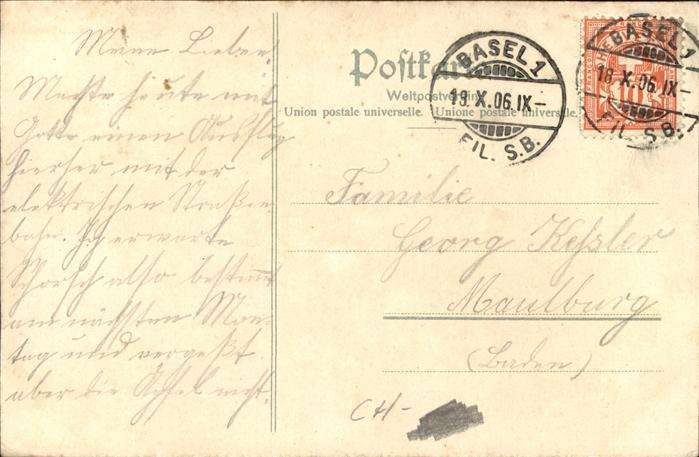 Meine Lieben!
Machte heute mit
Gotte einen Ausflug
hierher mit der
elektrischen Straßen-
bahn. Ich erwarte
Schorsch also bestimmt
am nächsten Mon-
tag und vergeßt
aber die Äpfel nicht.
Postkarte
Weltpostverein
Union postale universelle. Union postale universelle.
BASEL 1
19.X.06.IX-
FIL. S.B.
BASEL 1
18.X.06.IX-
FIL. S.B.
Familie
Georg Keßler
Maulburg
(Baden)
CH-